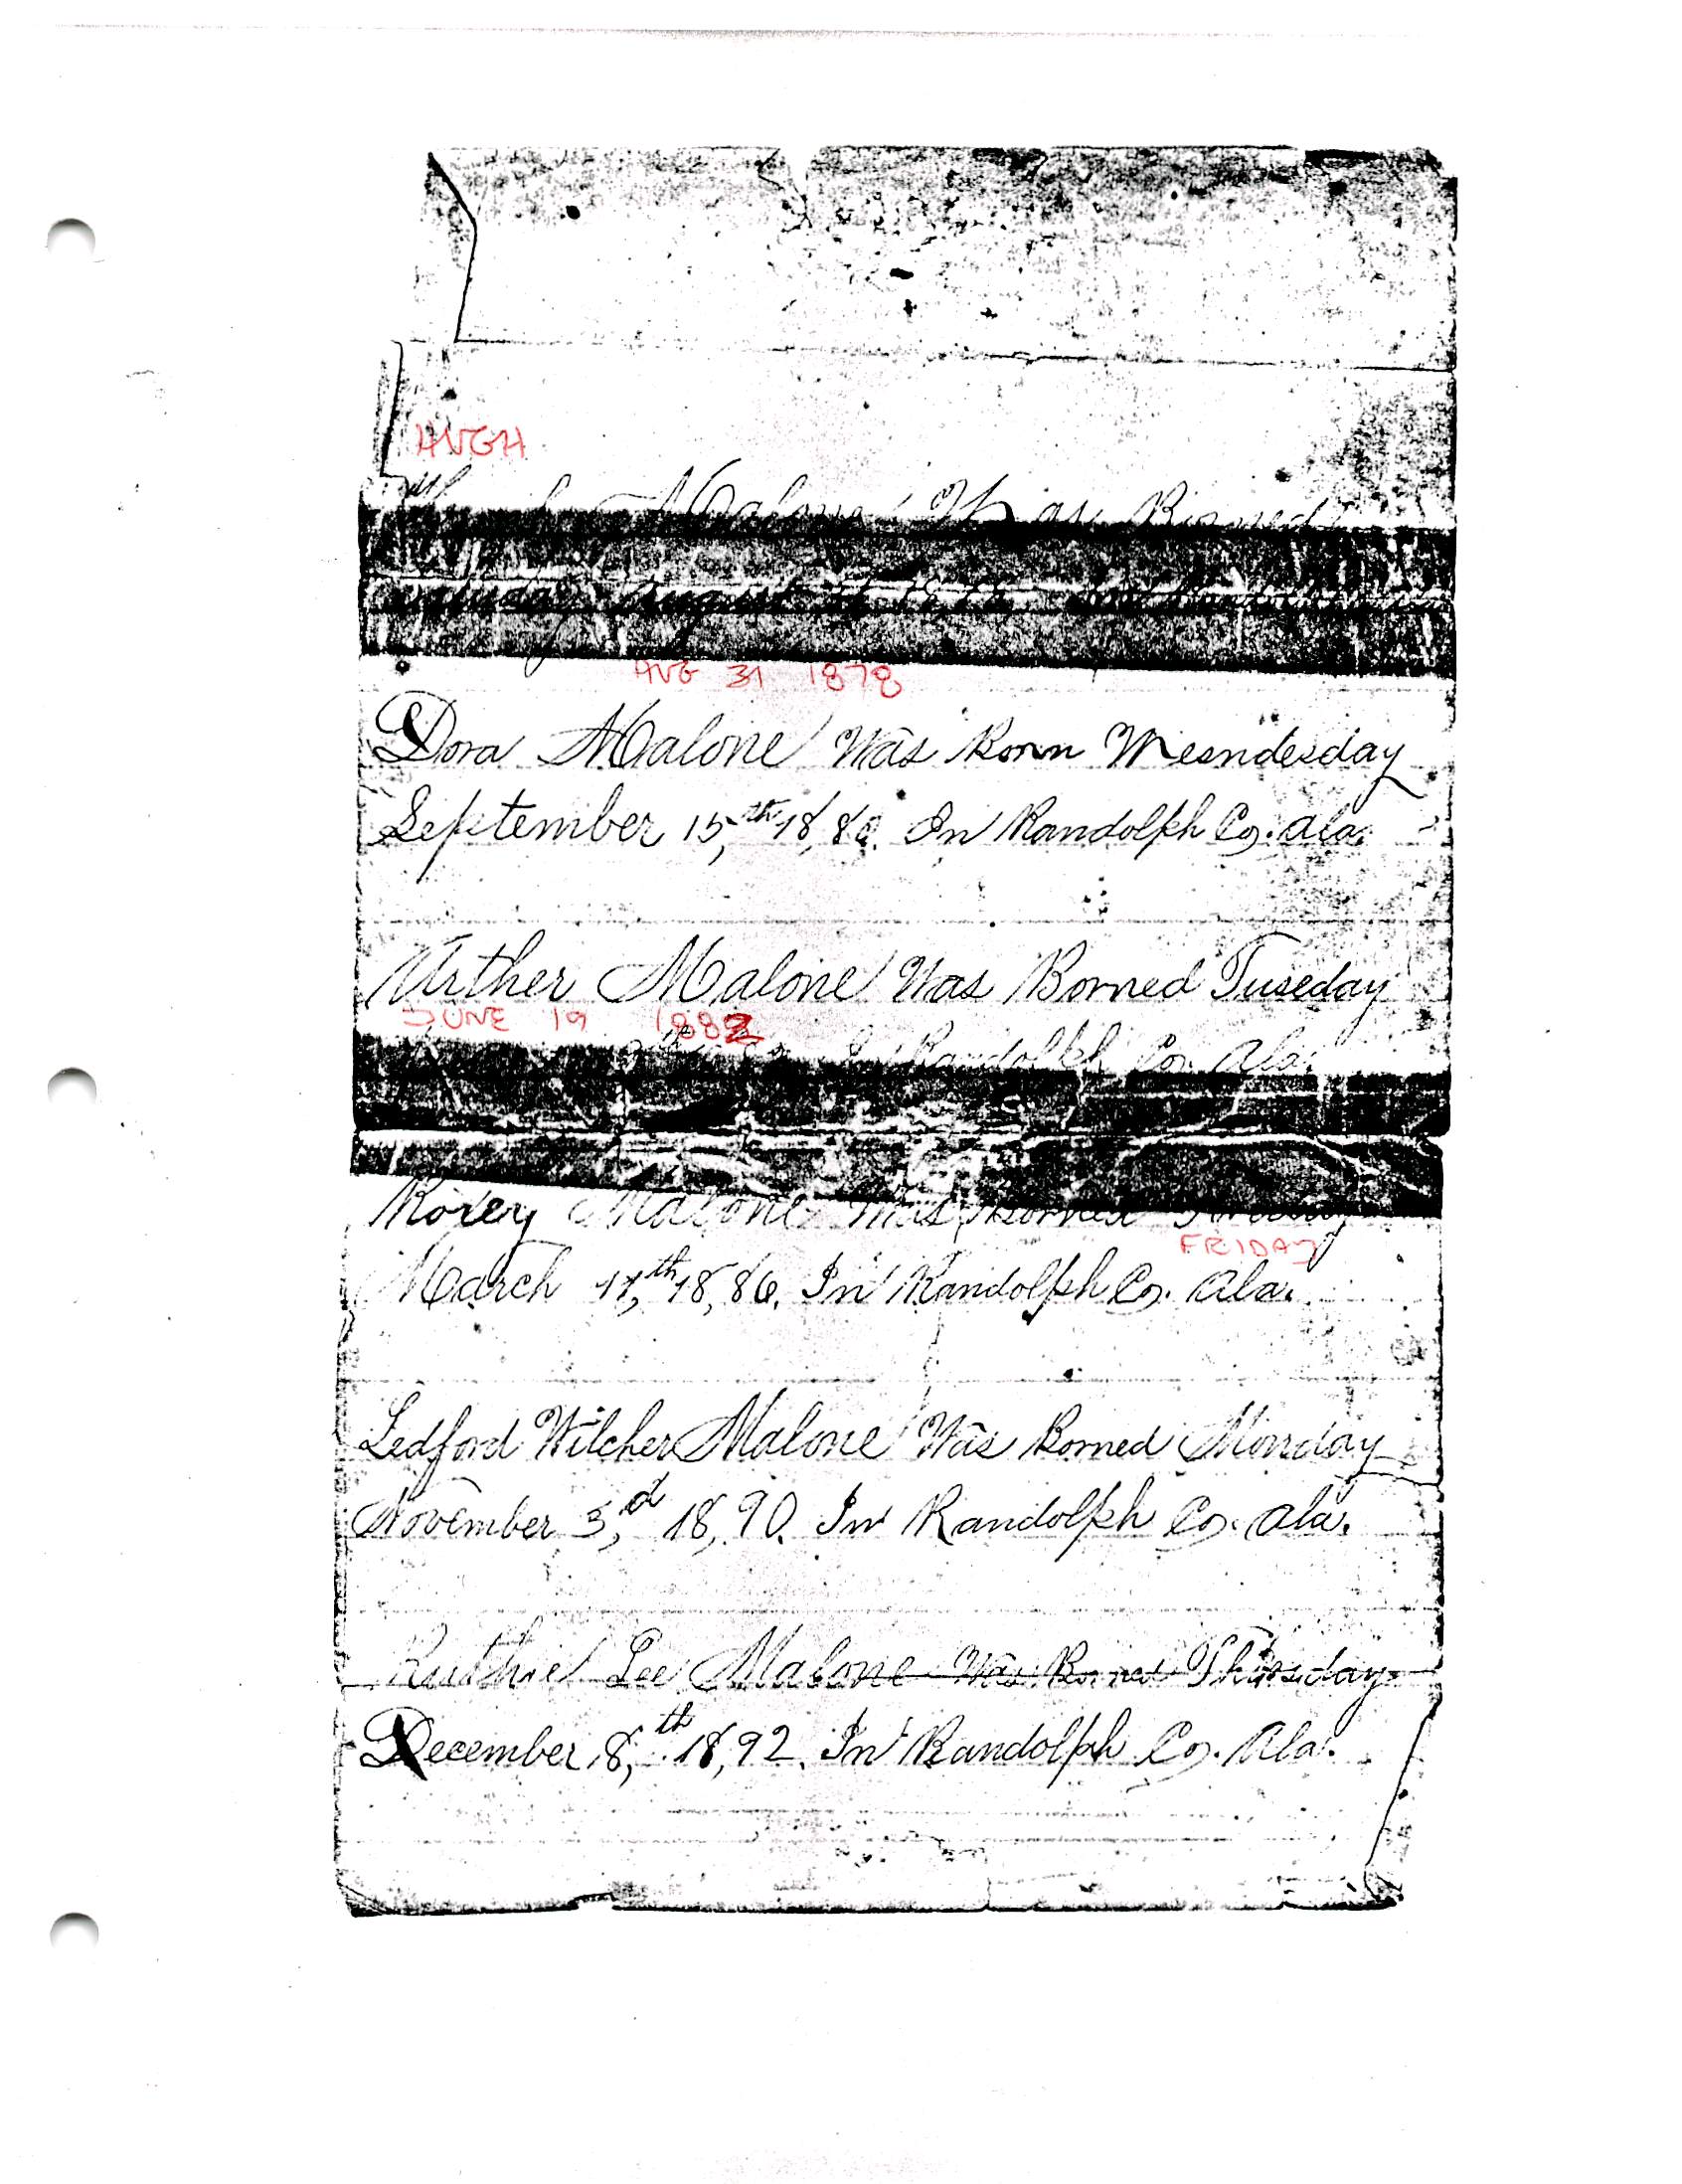 HUGH
Malone Was Borned
August 31 1878
AUG 31 1878
Dora Malone Was Born Wesndesday
September 15,th 18,80. In Randolph Co. Ala.
Arther Malone Was Borned Tuseday
JUNE 19 1882
Randolph Co. Ala.
Roxey Malone Was Borned Friday
FRIDAY
March 11,th 18,86. In Randolph Co. Ala.
Ledford Wilcher Malone Was Borned Monday
November 3,d 18,90. In Randolph Co. Ala.
Ruthie Lee Malone Was Borned Thirsday
December 8,th 18,92. In Randolph Co. Ala.